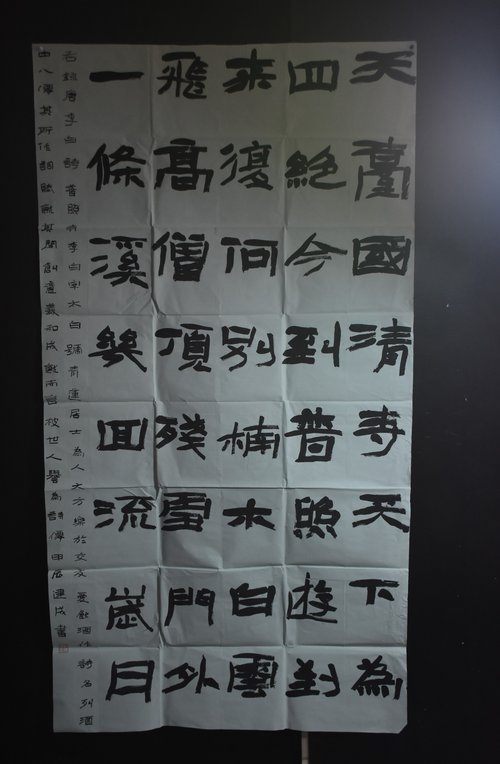 天臺國清寺天下為
四絕今到普照遊到
來復何別楠木白雲
飛高僧頂殘雪門外
一條溪幾回流歲月
右錄唐李白詩普照寺李白字太白號青蓮居士為人大方樂於交友愛飲酒作詩名列酒
中八僊其所作詞賦就其開創意義和成就而言被世人譽為詩僊甲辰連成書